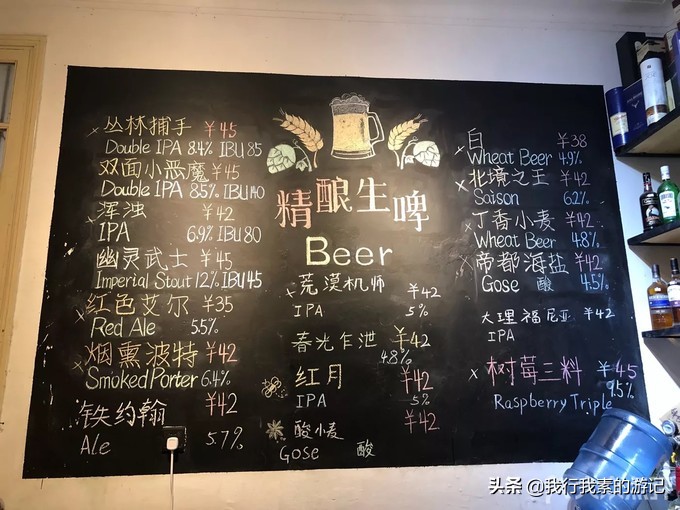 丛林捕手 ¥45
Double IPA 8.4% IBU 85
双面小恶魔 ¥45
Double IPA 8.5% IBU 140
浑浊 ¥42
IPA 6.9% IBU 80
幽灵武士 ¥45
Imperial Stout 12% IBU 45
红色艾尔 ¥35
Red Ale 5.5%
烟熏波特 ¥42
Smoked Porter 6.4%
铁约翰 ¥42
Ale 5.7%
精酿生啤
Beer
荒漠机师 ¥42
IPA 5%
春光乍泄 ¥42
4.8%
红月 ¥42
IPA 5%
酸小麦 ¥42
Gose 酸
白 ¥38
Wheat Beer 4.9%
北境之王 ¥42
Saison 6.2%
丁香小麦 ¥42
Wheat Beer 4.8%
帝都海盐 ¥42
Gose 酸 4.5%
大理福尼亚 ¥42
IPA
树莓三料 ¥45
9.5%
Raspberry Triple
头条 @我行我素的游记